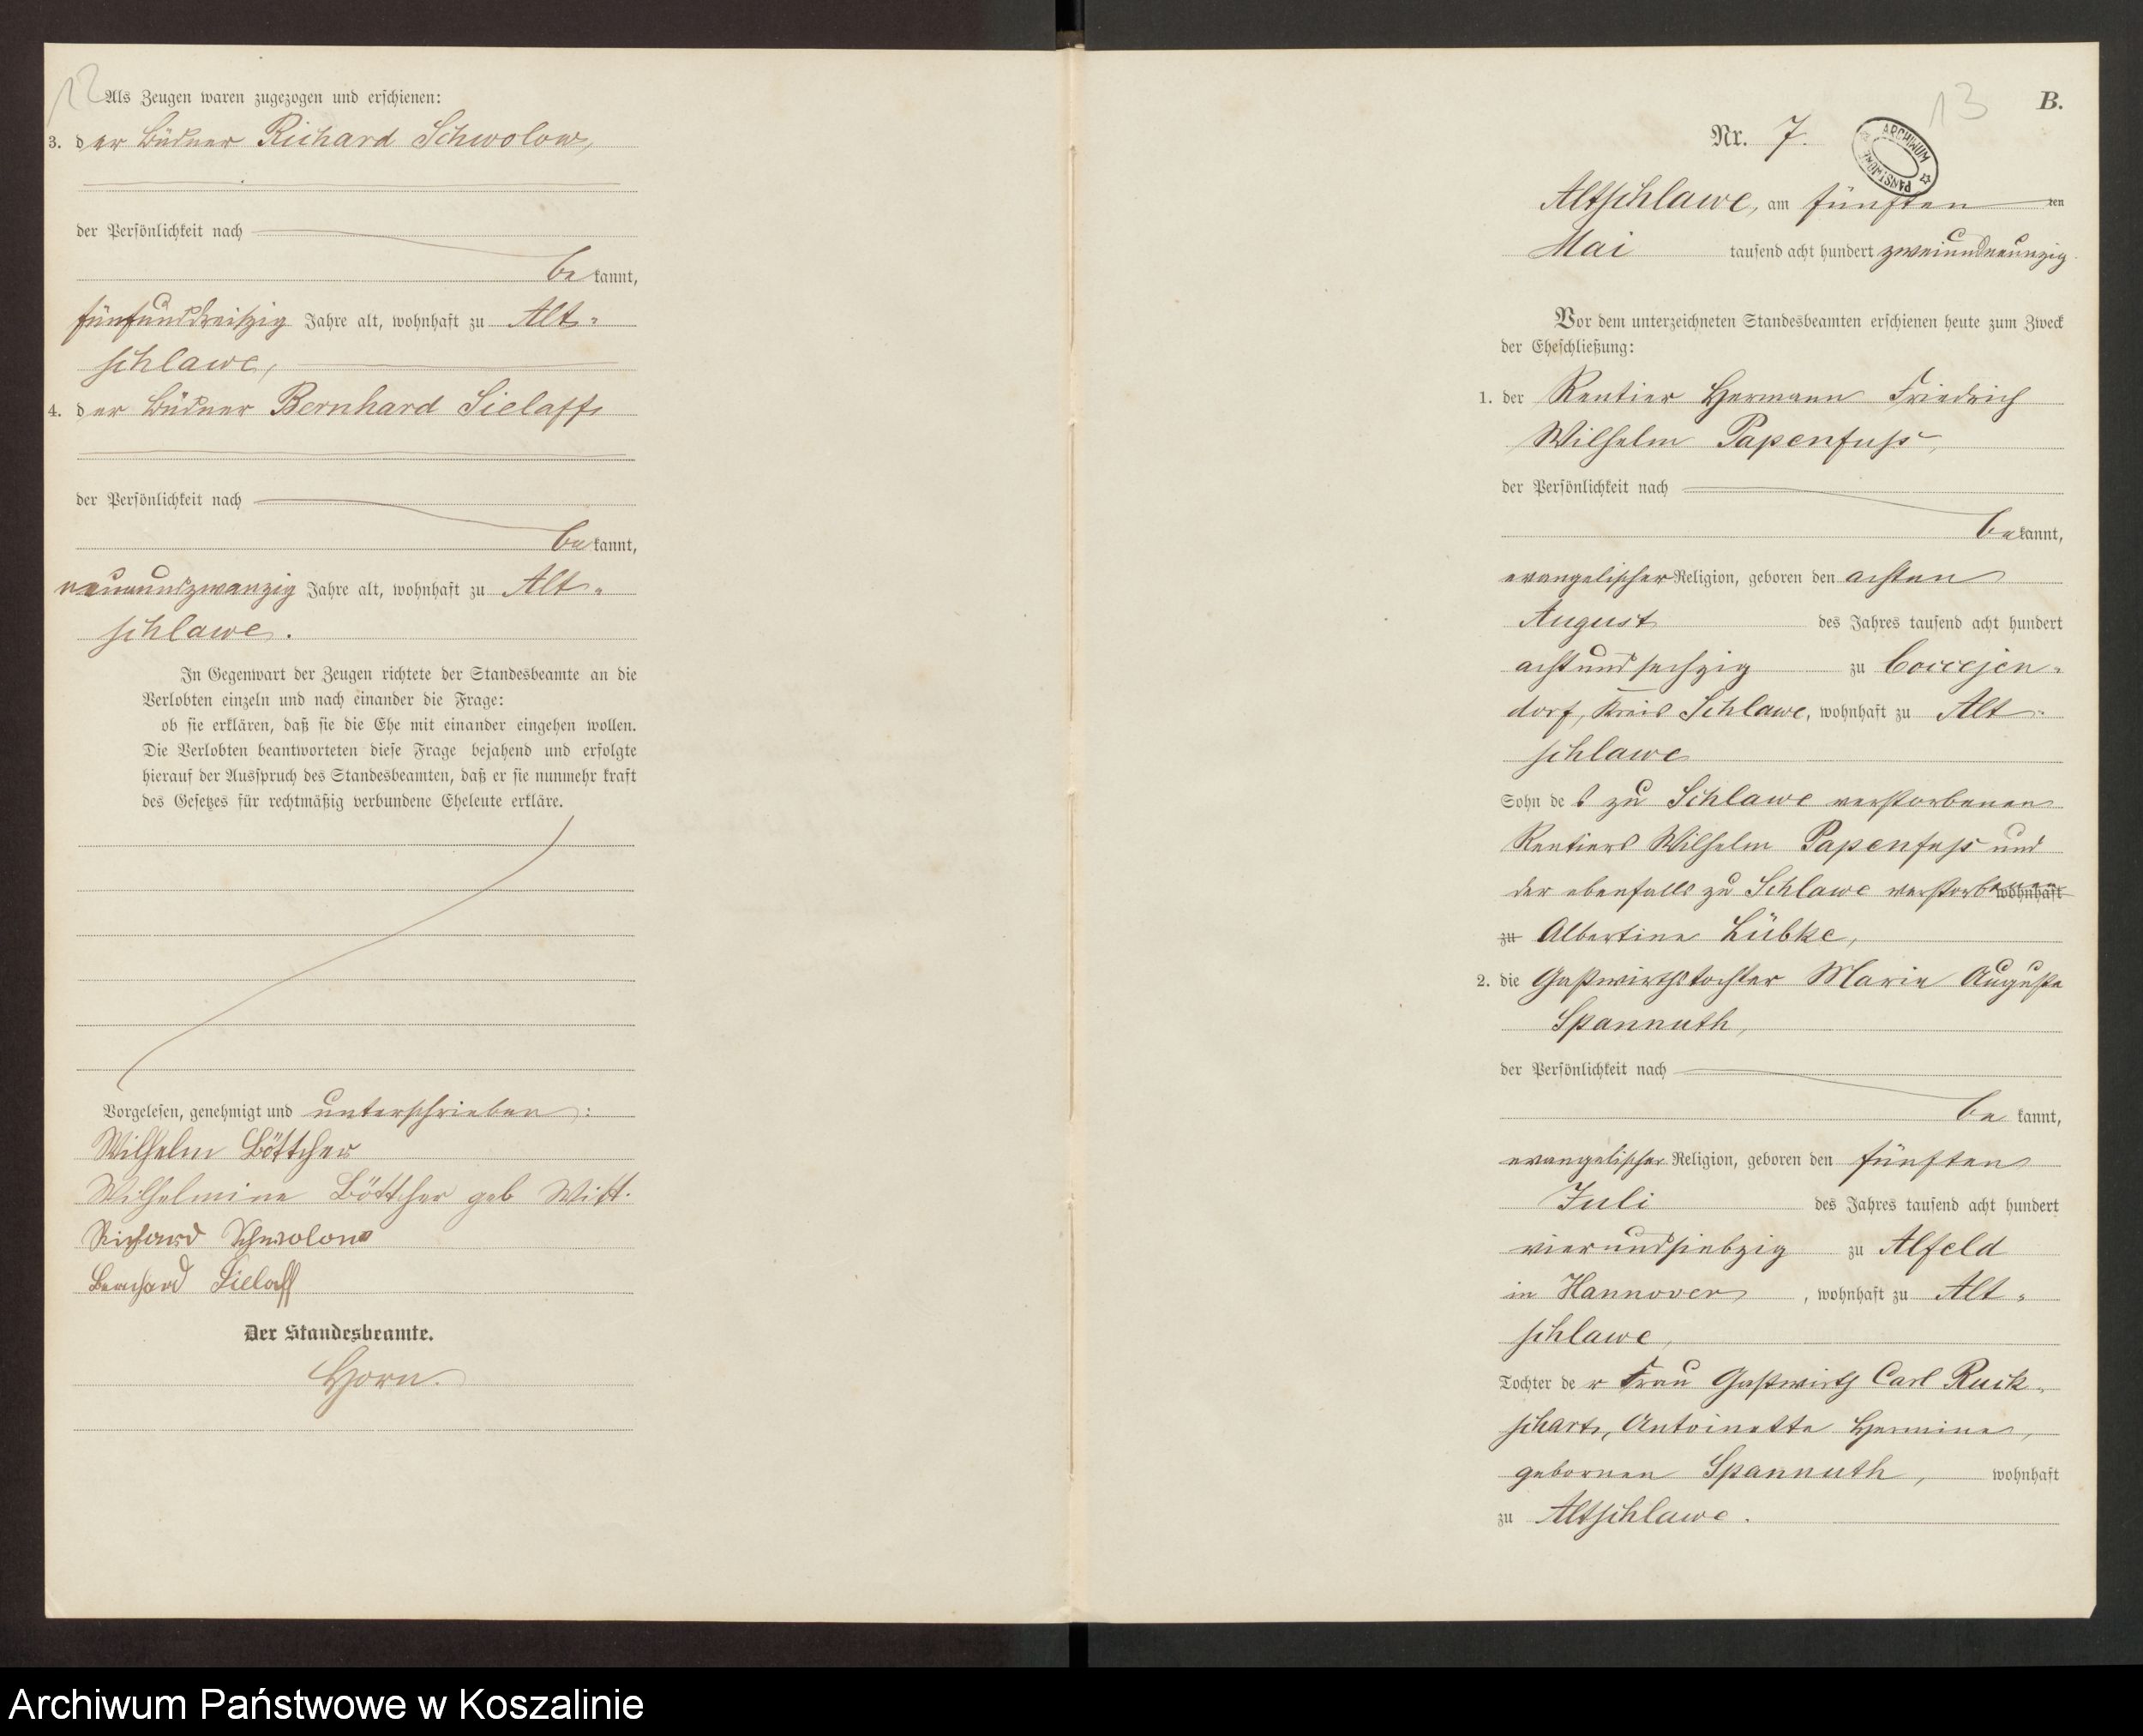 12
Als Zeugen waren zugezogen und erschienen:
3. der Büdner Richard Schwolow,
der Persönlichkeit nach
bekannt,
fünfunddreißig Jahre alt, wohnhaft zu Alt-
schlawe,
4. der Büdner Bernhard Sielaff,
der Persönlichkeit nach
bekannt,
neunundzwanzig Jahre alt, wohnhaft zu Alt-
schlawe.
In Gegenwart der Zeugen richtete der Standesbeamte an die
Verlobten einzeln und nach einander die Frage:
ob sie erklären, daß sie die Ehe mit einander eingehen wollen.
Die Verlobten beantworteten diese Frage bejahend und erfolgte
hierauf der Ausspruch des Standesbeamten, daß er sie nunmehr kraft
des Gesetzes für rechtmäßig verbundene Eheleute erkläre.
Vorgelesen, genehmigt und unterschrieben:
Wilhelm Böttcher
Wilhelmine Böttcher geb Witt.
Richard Schwolow
Bernhard Sielaff
Der Standesbeamte.
Horn.
13
B.
Nr. 7.
ARCHIWUM PAŃSTWOWE
Altschlawe, am fünften ten
Mai tausend acht hundert zweiundneunzig
Vor dem unterzeichneten Standesbeamten erschienen heute zum Zweck
der Eheschließung:
1. der Rentier Hermann Friedrich
Wilhelm Papenfuss,
der Persönlichkeit nach
bekannt,
evangelischer Religion, geboren den achten
August des Jahres tausend acht hundert
achtundsechzig zu Coccejen-
dorf, Kreis Schlawe, wohnhaft zu Alt-
schlawe
Sohn des zu Schlawe verstorbenen
Rentiers Wilhelm Papenfuss und
der ebenfalls zu Schlawe verstorbenen wohnhaft
zu Albertine Lübke,
2. die Gastwirthstochter Marie Auguste
Spannuth,
der Persönlichkeit nach
bekannt,
evangelischer Religion, geboren den fünften
Juli des Jahres tausend acht hundert
vierundsiebzig zu Alfeld
in Hannover, wohnhaft zu Alt-
schlawe,
Tochter der Frau Gastwirth Carl Ruck-
schart, Antoinette Hermine,
gebornen Spannuth, wohnhaft
zu Altschlawe.
Archiwum Państwowe w Koszalinie